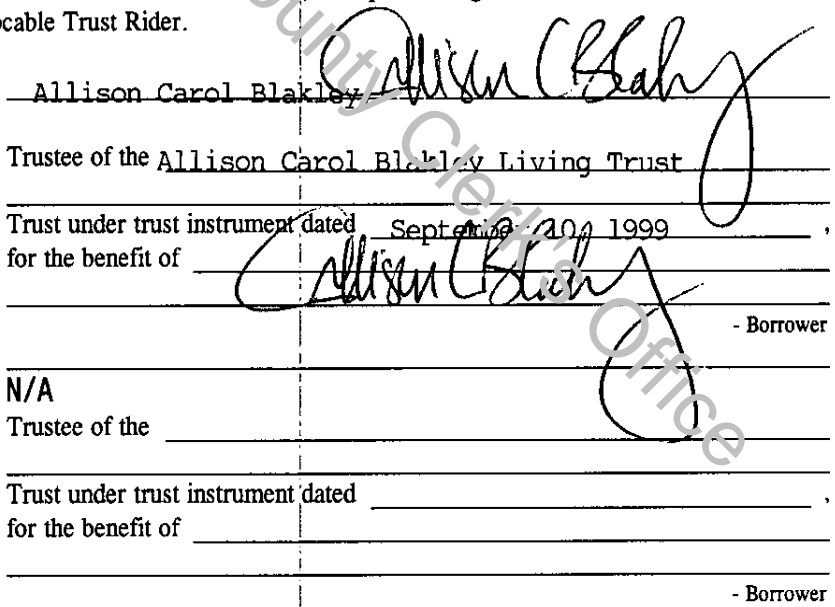 ocable Trust Rider.
Allison Carol Blakley Allison C Blakley
Trustee of the Allison Carol Blakley Living Trust
Trust under trust instrument dated September 10, 1999 ,
for the benefit of
Allison C Blakley
- Borrower
N/A
Trustee of the
Trust under trust instrument dated ,
for the benefit of
- Borrower
ounty Clerk's Office